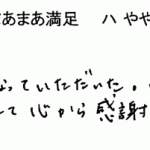 あまあ満足 ハ やや
っていただいた。
て心から感謝